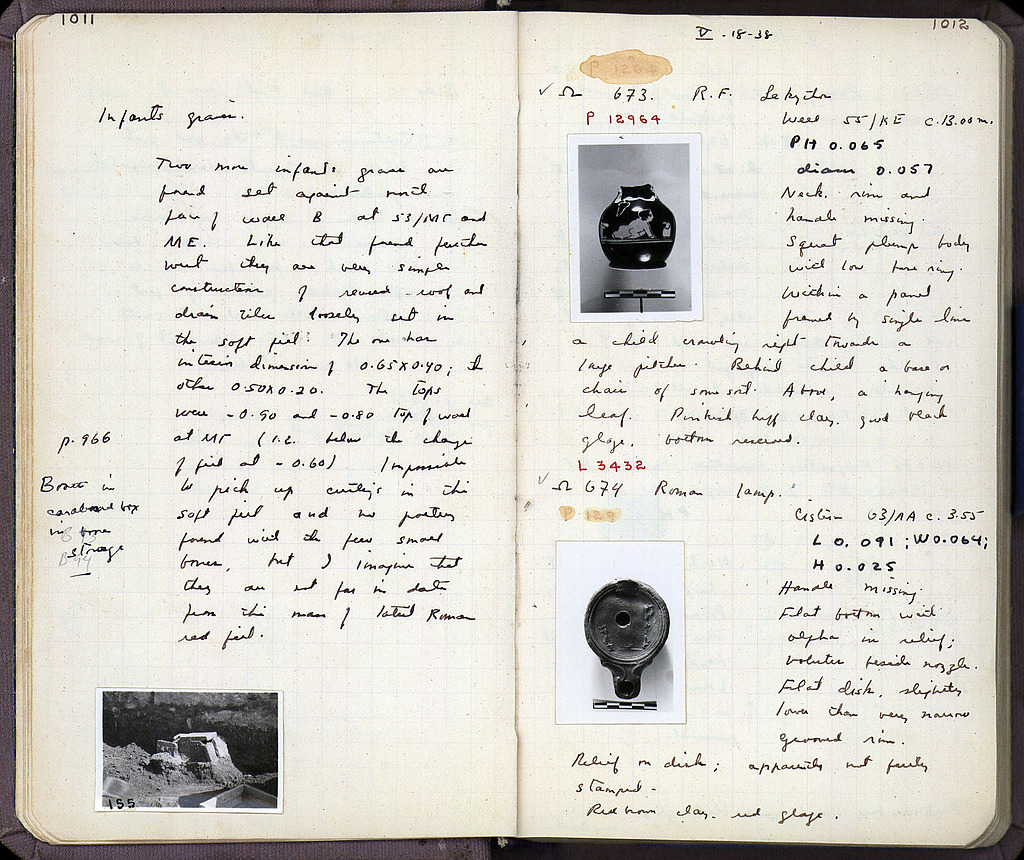 1011
Infants graves.
Two more infants graves are
found set against north
face of wall B at 53/ΜΣΤ and
ME. Like that found further
west they are very simple
construction of reused roof and
drain tiles loosely set in
the soft fill. The one has
interior dimension of 0.65x0.40; the
other 0.50x0.20. The tops
were -0.90 and -0.80 top of wall
at (i.e. below the change
of fill at -0.60) Impossible
to pick up cuttings in this
soft fill and no pottery
found with the few small
bones, but I imagine that
they are not far in date
from this mass of latest Roman
red fill.
p. 966
Bones in
cardboard box
in bone
storage
155
1012
V -18-38
P 12964
Ω 673. R.F. Lekythos
P 12964
Well 55/ΚΕ c. 13.00 m.
PH 0.065
diam 0.057
Neck, rim and
handle missing.
Squat plump body
with low base ring.
Within a panel
framed by single line
a child crawling right towards a
large pitcher. Behind child a base or
chair of some sort. Above, a hanging
leaf. Pinkish buff clay, good black
glaze, bottom reserved.
L 3432
Ω 674 Roman lamp.
P 129
Cistern 63/ΛΑ c. 3.55
L 0.091; W 0.064;
H 0.025
Handle missing.
Flat bottom with
alpha in relief;
volutes beside nozzle.
Flat disk, slightly
lower than very narrow
grooved rim.
Relief on disk; apparently not fully
stamped -
Red brown clay. red glaze.